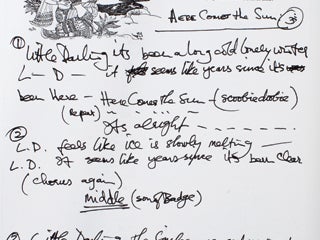 Here Comes the Sun
① Little Darling its been a long cold lonely winter
L— D— it seems like years since its
been Here — Here Comes the Sun — (scoobiedoobie)
(Repeat) its alright
② L.D. feels like ice is slowly melting —
L.D. It seems like years since its been clear
(chorus again)
middle (song Badge)
Little Darling the